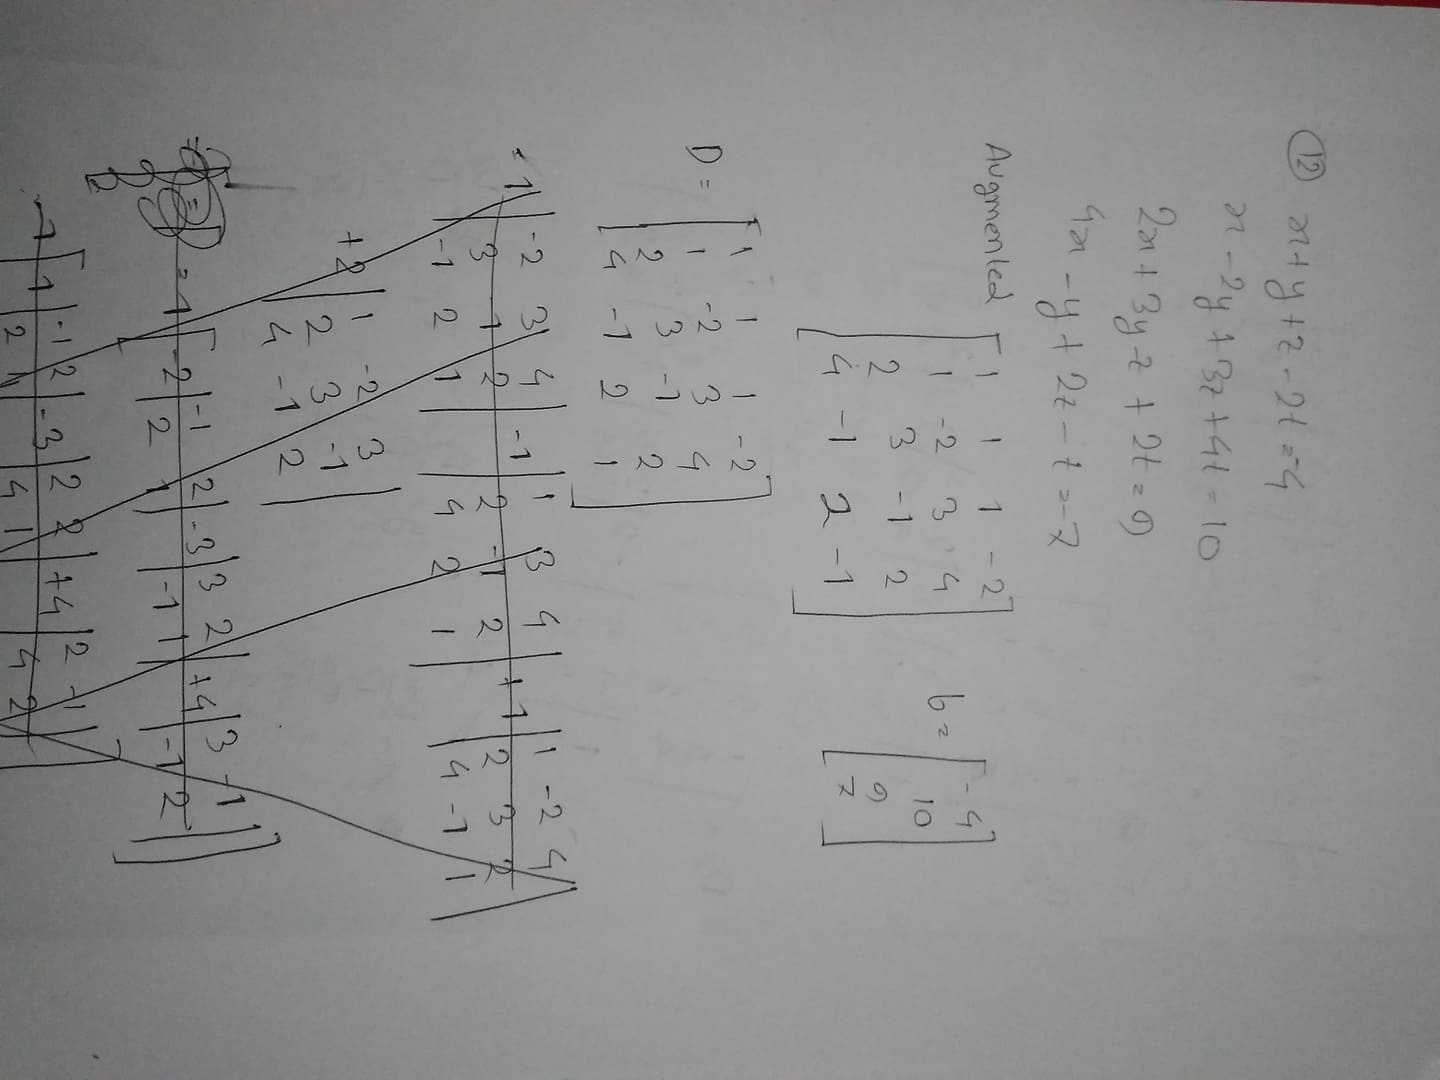 (12) x+y+z-2t=-4
x-2y+3z+4t=10
2x+3y-z+2t=9
4x-y+2z-t=-7
Augmented
1 1 1 -2
1 -2 3 4
2 3 -1 2
4 -1 2 -1
b=
-4
10
9
7
D=
1 1 1 -2
1 -2 3 4
2 3 -1 2
4 -1 2 1
-2 3 4 -1 1 3 4 +1 1 -2 4
=1 3 1 2 2 -1 2 2 3 2
-1 2 1 4 2 1 4 -1 1
+2 1 -2 3
2 3 -1
4 -1 2
=1 -2 -1 2 -3 3 2 +4 3 -1
2 1 -1 1 -1 2
-1 1 -1 2 -3 2 2 +4 2 -1
2 1 4 1 4 2